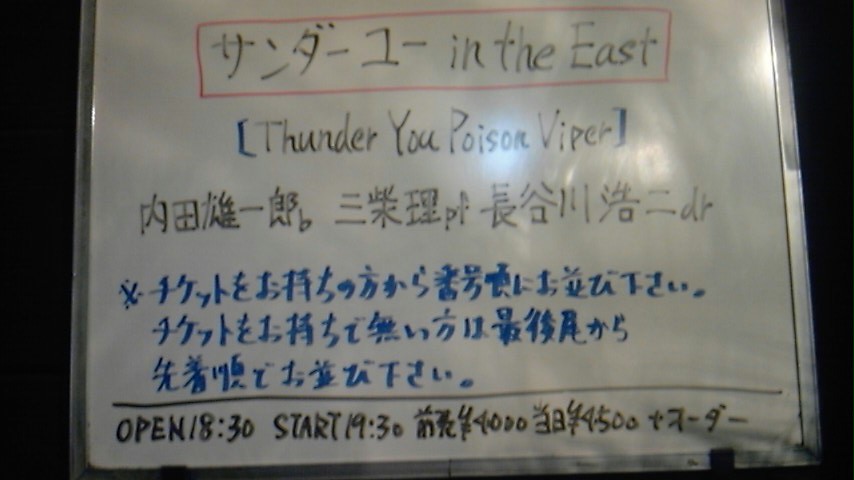 サンダーユー in the East
[Thunder You Poison Viper]
内田雄一郎b 三柴理pf 長谷川浩二dr
※チケットをお持ちの方から番号順にお並び下さい。
チケットをお持ちで無い方は最後尾から
先着順でお並び下さい。
OPEN18:30 START19:30 前売¥4000 当日¥4500 +オーダー